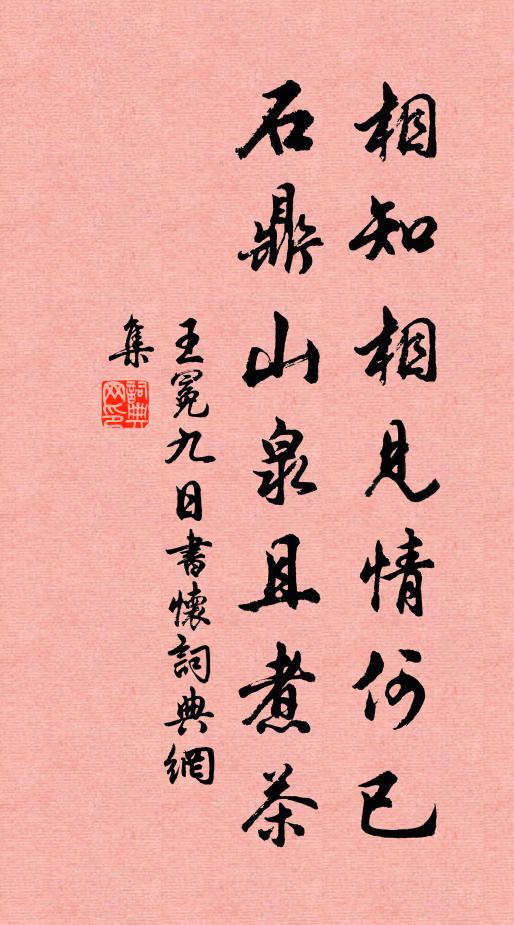 相知相見情何已
石鼎山泉且煮茶
王冕九日書懷詞典網
集
詞典網印